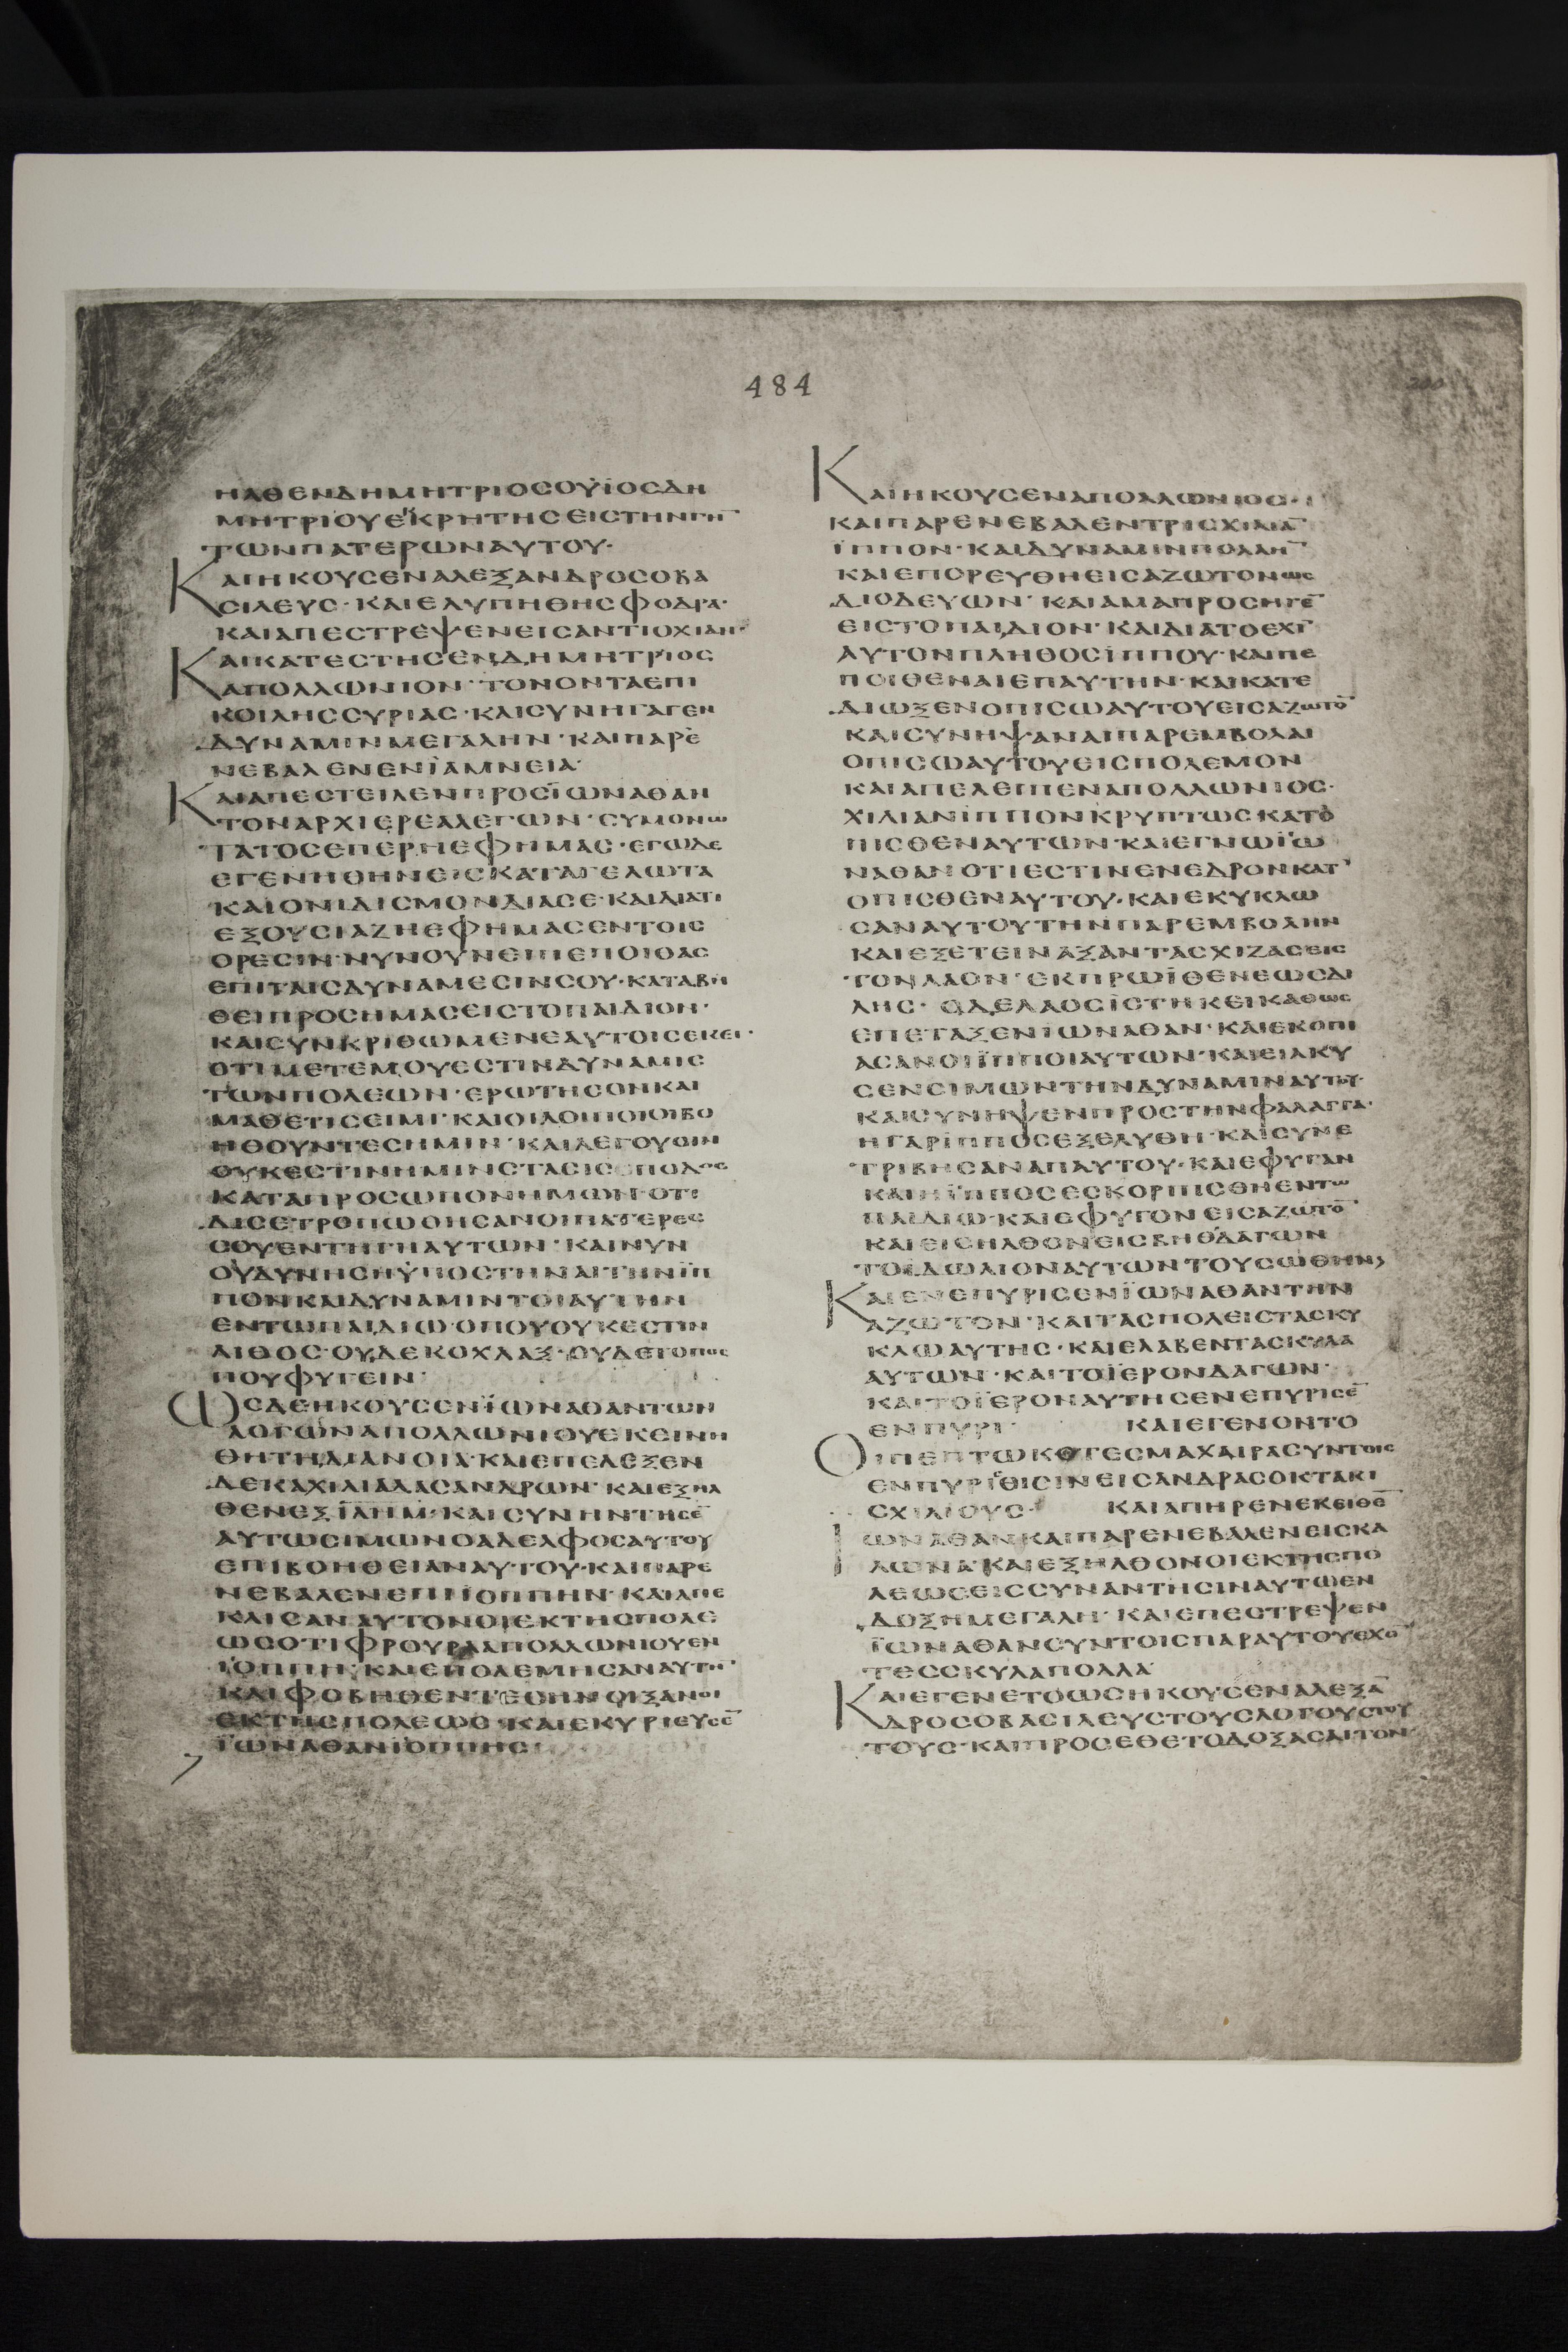 484
ΗΛΘΕΝΔΗΜΗΤΡΙΟCΟΥΪΟCΔΗ
ΜΗΤΡΙΟΥΕΚΡΗΤΗCΕΙCΤΗΝΓΗ̄
ΤΩΝΠΑΤΕΡΩΝΑΥΤΟΥ·
ΚΑΙΗΚΟΥCΕΝΑΛΕΞΑΝΔΡΟCΟΒΑ
CΙΛΕΥC·ΚΑΙΕΛΥΠΗΘΗCΦΟΔΡΑ·
ΚΑΙΑΠΕCΤΡΕΨΕΝΕΙCΑΝΤΙΟΧΙΑΝ·
ΚΑΙΚΑΤΕCΤΗCΕΝΔΗΜΗΤΡΙΟC
ΑΠΟΛΛΩΝΙΟΝ·ΤΟΝΟΝΤΑΕΠΙ
ΚΟΙΛΗCCΥΡΙΑC·ΚΑΙCΥΝΗΓΑΓΕΝ
ΔΥΝΑΜΙΝΜΕΓΑΛΗΝ·ΚΑΙΠΑΡΕ
ΝΕΒΑΛΕΝΕΝΪΑΜΝΕΙΑ·
ΚΑΙΑΠΕCΤΕΙΛΕΝΠΡΟCΪΩΝΑΘΑΝ
ΤΟΝΑΡΧΙΕΡΕΑΛΕΓΩΝ·CΥΜΟΝΩ
ΤΑΤΟCΕΠΕΡΗΕΦΗΜΑC·ΕΓΩΔΕ
ΕΓΕΝΗΘΗΝΕΙCΚΑΤΑΓΕΛΩΤΑ
ΚΑΙΟΝΙΔΙCΜΟΝΔΙΑCΕ·ΚΑΙΔΙΑΤΙ
ΕΞΟΥCΙΑΖΗΕΦΗΜΑCΕΝΤΟΙC
ΟΡΕCΙΝ·ΝΥΝΟΥΝΕΙΠΕΠΟΙΘΑC
ΕΠΙΤΑΙCΔΥΝΑΜΕCΙΝCΟΥ·ΚΑΤΑΒΗ
ΘΕΙΠΡΟCΗΜΑCΕΙCΤΟΠΑΙΔΙΟΝ·
ΚΑΙCΥΝΚΡΙΘΩΜΕΝΕΑΥΤΟΙCΕΚΕΙ·
ΟΤΙΜΕΤΕΜΟΥΕCΤΙΝΔΥΝΑΜΙC
ΤΩΝΠΟΛΕΩΝ·ΕΡΩΤΗCΟΝΚΑΙ
ΜΑΘΕΤΙCΕΙΜΙ·ΚΑΙΟΙΛΟΙΠΟΙΟΙΒΟ
ΗΘΟΥΝΤΕCΗΜΙΝ·ΚΑΙΛΕΓΟΥCΙΝ
ΟΥΚΕCΤΙΝΗΜΙΝCΤΑCΙC ΠΟΔΟC
ΚΑΤΑΠΡΟCΩΠΟΝΗΜΩΝ·ΟΤΙ
ΔΙCΕΤΡΟΠΩΘΗCΑΝΟΙΠΑΤΕΡΕC
CΟΥΕΝΤΗΓΗΑΥΤΩΝ·ΚΑΙΝΥΝ
ΟΥΔΥΝΗCΗΫΠΟCΤΗΝΑΙΤΗΝΪΠ
ΠΟΝΚΑΙΔΥΝΑΜΙΝΤΟΙΑΥΤΗΝ
ΕΝΤΩΠΑΙΔΙΩ·ΟΠΟΥΟΥΚΕCΤΙΝ
ΛΙΘΟC·ΟΥΔΕΚΟΧΛΑΞ·ΟΥΔΕΤΟΠΟC
ΠΟΥΦΥΓΕΙΝ·
ΩCΔΕΗΚΟΥCΕΝΪΩΝΑΘΑΝΤΩΝ
ΛΟΓΩΝΑΠΟΛΛΩΝΙΟΥΕΚΕΙΝΗ
ΘΗΤΗΔΙΑΝΟΙΑ·ΚΑΙΕΠΕΛΕΞΕΝ
ΔΕΚΑΧΙΛΙΑΔΑCΑΝΔΡΩΝ·ΚΑΙΕΞΗΛ
ΘΕΝΕΞΪΛΗΜ·ΚΑΙCΥΝΗΝΤΗCΕ̄
ΑΥΤΩCΙΜΩΝΟΑΔΕΛΦΟCΑΥΤΟΥ
ΕΠΙΒΟΗΘΕΙΑΝΑΥΤΟΥ·ΚΑΙΠΑΡΕ
ΝΕΒΑΛΕΝΕΠΙΪΟΠΠΗΝ·ΚΑΙΑΠΕ
ΚΛΙCΑΝΑΥΤΟΝΟΙΕΚΤΗCΠΟΛΕ
ΩCΟΤΙΦΡΟΥΡΑΑΠΟΛΛΩΝΙΟΥΕΝ
ΪΟΠΠΗ·ΚΑΙΕΠΟΛΕΜΗCΑΝΑΥΤΗ̄
ΚΑΙΦΟΒΗΘΕΝΤΕCΗΝΟΙΞΑΝΟΙ
ΕΚΤΗCΠΟΛΕΩC·ΚΑΙΕΚΥΡΙΕΥCΕ̄
ΪΩΝΑΘΑΝΪΟΠΠΗC·
ΚΑΙΗΚΟΥCΕΝΑΠΟΛΛΩΝΙΟC·
ΚΑΙΠΑΡΕΝΕΒΑΛΕΝΤΡΙCΧΙΛΙᾹ
ΪΠΠΟΝ·ΚΑΙΔΥΝΑΜΙΝΠΟΛΛΗ̄
ΚΑΙΕΠΟΡΕΥΘΗΕΙCΑΖΩΤΟΝΩC
ΔΙΟΔΕΥΩΝ·ΚΑΙΑΜΑΠΡΟCΗΓΕ̄
ΕΙCΤΟΠΑΙΔΙΟΝ·ΚΑΙΔΙΑΤΟΕΧῙ
ΑΥΤΟΝΠΛΗΘΟCΪΠΠΟΥ·ΚΑΙΠΕ
ΠΟΙΘΕΝΑΙΕΠΑΥΤΗΝ·ΚΑΙΚΑΤΕ
ΔΙΩΞΕΝΟΠΙCΩΑΥΤΟΥΕΙCΑΖΩΤΟ̄
ΚΑΙCΥΝΗΨΑΝΑΙΠΑΡΕΜΒΟΛΑΙ
ΟΠΙCΩΑΥΤΟΥΕΙCΠΟΛΕΜΟΝ
ΚΑΙΑΠΕΛΕΙΠΕΝΑΠΟΛΛΩΝΙΟC·
ΧΙΛΙΑΝΪΠΠΟΝΚΡΥΠΤΩCΚΑΤΟ
ΠΙCΘΕΝΑΥΤΩΝ·ΚΑΙΕΓΝΩΪΩ
ΝΑΘΑΝΟΤΙΕCΤΙΝΕΝΕΔΡΟΝΚΑΤ
ΟΠΙCΘΕΝΑΥΤΟΥ·ΚΑΙΕΚΥΚΛΩ
CΑΝΑΥΤΟΥΤΗΝΠΑΡΕΜΒΟΛΗΝ
ΚΑΙΕΞΕΤΕΙΝΑΞΑΝΤΑCΧΙΖΑCΕΙC
ΤΟΝΛΑΟΝ·ΕΚΠΡΩΪΘΕΝΕΩCΔΙ
ΛΗC·ΟΔΕΛΑΟCΪCΤΗΚΕΙΚΑΘΩC
ΕΠΕΤΑΞΕΝΪΩΝΑΘΑΝ·ΚΑΙΕΚΟΠΙ
ΑCΑΝΟΙΪΠΠΟΙΑΥΤΩΝ·ΚΑΙΕΙΛΚΥ
CΕΝCΙΜΩΝΤΗΝΔΥΝΑΜΙΝΑΥΤΟΥ·
ΚΑΙCΥΝΗΨΕΝΠΡΟCΤΗΝΦΑΛΑΓΓΑ·
ΗΓΑΡΪΠΠΟCΕΞΕΛΥΘΗ·ΚΑΙCΥΝΕ
ΤΡΙΒΗCΑΝΑΠΑΥΤΟΥ·ΚΑΙΕΦΥΓΑΝ
ΚΑΙΗΪΠΠΟCΕCΚΟΡΠΙCΘΗΕΝΤΩ
ΠΑΙΔΙΩ·ΚΑΙΕΦΥΓΟΝΕΙCΑΖΩΤΟ̄
ΚΑΙΕΙCΗΛΘΟΝΕΙCΒΗΘΔΑΓΩΝ
ΤΟΕΙΔΩΛΙΟΝΑΥΤΩΝΤΟΥCΩΘΗΝ
ΚΑΙΕΝΕΠΥΡΙCΕΝΪΩΝΑΘΑΝΤΗΝ
ΑΖΩΤΟΝ·ΚΑΙΤΑCΠΟΛΕΙCΤΑCΚΥ
ΚΛΩΑΥΤΗC·ΚΑΙΕΛΑΒΕΝΤΑCΚΥΛΑ
ΑΥΤΩΝ·ΚΑΙΤΟΪΕΡΟΝΔΑΓΩΝ·
ΚΑΙΤΟΪΕΡΟΝΑΥΤΗCΕΝΕΠΥΡΙCΕ̄
ΕΝΠΥΡΙ· ΚΑΙΕΓΕΝΟΝΤΟ
ΟΙΠΕΠΤΩΚΟΤΕCΜΑΧΑΙΡΑCΥΝΤΟΙC
ΕΝΠΥΡΙΘΙCΙΝΕΙCΑΝΔΡΑCΟΚΤΑΚΙ
CΧΙΛΙΟΥC· ΚΑΙΑΠΗΡΕΝΕΚΕΙΘΕ̄
ΙΩΝΑΘΑΝΚΑΙΠΑΡΕΝΕΒΑΛΕΝΕΙCΚΑ
ΛΩΝΑ·ΚΑΙΕΞΗΛΘΟΝΟΙΕΚΤΗCΠΟ
ΛΕΩCΕΙCCΥΝΑΝΤΗCΙΝΑΥΤΩΕΝ
ΔΟΞΗΜΕΓΑΛΗ·ΚΑΙΕΠΕCΤΡΕΨΕΝ
ΪΩΝΑΘΑΝCΥΝΤΟΙCΠΑΡΑΥΤΟΥΕΧΟ̄
ΤΕCCΚΥΛΑΠΟΛΛΑ·
ΚΑΙΕΓΕΝΕΤΟΩCΗΚΟΥCΕΝΑΛΕΞᾹ
ΔΡΟCΟΒΑCΙΛΕΥCΤΟΥCΛΟΓΟΥCΤΟΥ
ΤΟΥC·ΚΑΙΠΡΟCΕΘΕΤΟΔΟΞΑCΑΙΤΟΝ·